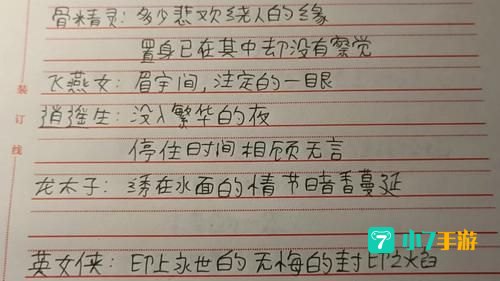 骨精灵：多少悲欢绕人的缘
置身已在其中却没有察觉
飞燕女：眉宇间，注定的一眼
逍遥生：没入繁华的夜
停住时间相顾无言
龙太子：绣在水面的情节暗香蔓延
英女侠：印上永世的无悔的封印之焰
装
订
线
7
小7手游